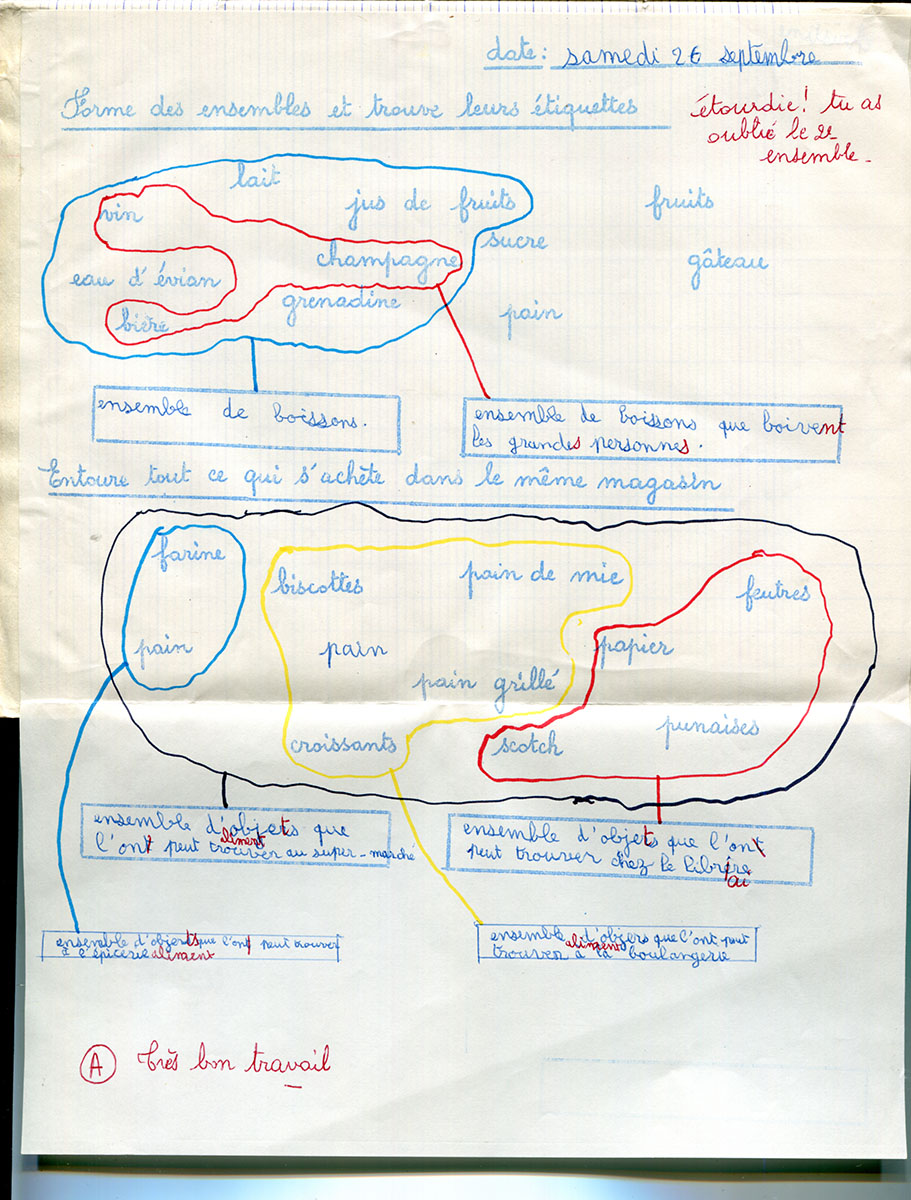 date: samedi 26 septembre
Forme des ensembles et trouve leurs étiquettes
étourdie! tu as
oublié le 2e
ensemble.
lait
vin
jus de fruits
fruits
sucre
champagne
gâteau
eau d'évian
grenadine
pain
bière
ensemble de boissons.
ensemble de boissons que boivent
les grandes personnes.
Entoure tout ce qui s'achète dans le même magasin
farine
biscottes
pain de mie
feutres
pain
pain
papier
pain grillé
punaises
croissants
scotch
ensemble d'objets que
aliment
l'ont peut trouver au super-marché
ensemble d'objets que l'ont
peut trouver chez le libraire
ensemble d'objets que l'ont peut trouver
à l'épicerie aliment
ensemble d'objers que l'ont peut
aliments
trouver à la boulangerie
A Très bon travail